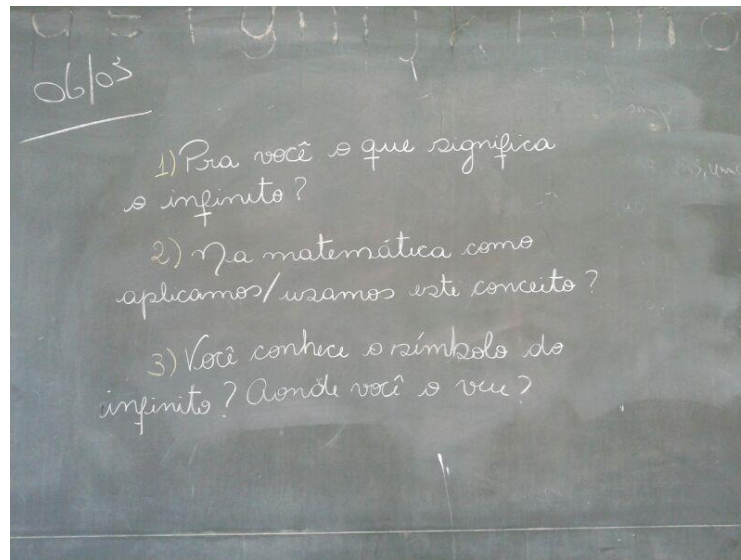 06/03
1) Pra você o que significa
o infinito?
2) Na matemática como
aplicamos/usamos este conceito?
3) Você conhece o símbolo do
infinito? Aonde você o veu?